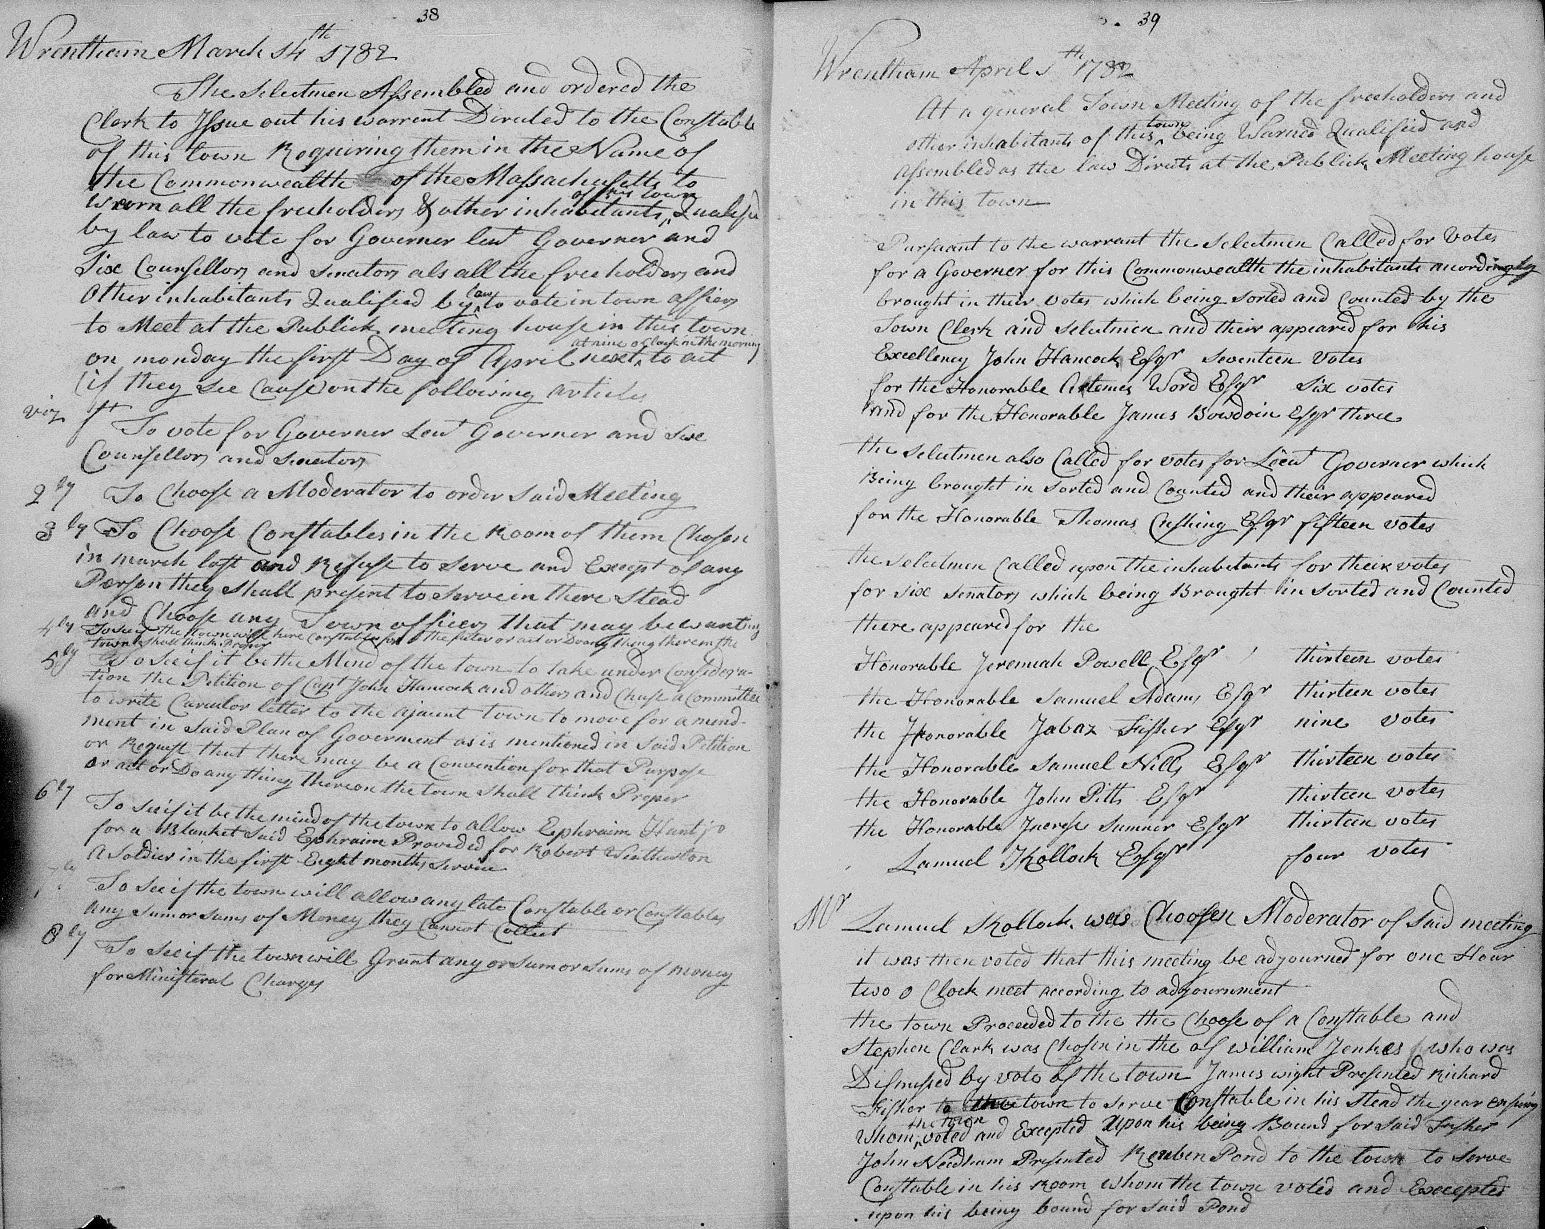 38
Wrentham March 14th 1782
The Selectmen Assembled and ordered the
Clerk to Issue out his warrent Directed to the Constable
of this town Requiring them in the Name of
the Commonwealth of the Massachusetts to
of this town
warn all the freeholders & other inhabitants Qualifid
by law to vote for Governer leut Governer and
Six Counsellors and Senators als all the freeholders and
law
Other inhabitants Qualified by to vote in town affiers
to Meet at the Publick meeting house in this town
at nine o Clock in the morning
on monday the first Day of April next to act
(if they see Cause) on the following articles
viz 1st To vote for Governer Leut Governer and Sixe
Counsellors and Senators
2ly To Choose a Moderator to order Said Meeting
3ly To Choose Constables in the Room of them Chosen
in march last and Refuse to serve and Except of any
Person they shall present to serve in there Stead
and Choose any Town officers that may be wanting
4ly To see if the town will hire Constables for the futer or act or Do any thing therein the
town shall think Proper
5ly To see if it be the Mind of the town to take under Considera-
tion the Petition of Capt John Hancock and others and Chuse a Committee
to write Curculor letter to the ajacent town to move for amend-
ment in Said Plan of Goverment as is mentioned in Said Petition
or Request that there may be a Convention for that Purpose
or act or Do any thing thereon the town Shall think Proper
6ly To see if it be the mind of the town to allow Ephraim Hunt jr
for a Blanket Said Ephraim Provided for Robert
A Soldier in the first Eight months Service
7ly To see if the town will allow any late Constable or Constables
any sum or sums of Money they Cannot Collect
8ly To see if the town will Grant any or sum or sums of money
for Ministeral Charges
39
Wrentham April 1th 1782
At a general Town Meeting of the freeholders and
town
other inhabitants of this being Warned Qualified and
assembled as the law Dirests at the Publick Meeting house
in this town
Pursuant to the warrant the Selectmen Called for Votes
for a Governer for this Commonwealth the inhabitants acordingly
brought in their votes which being sorted and Counted by the
Town Clerk and Selectmen and their appeared for his
Excellency John Hancock Esqr Seventeen votes
for the Honorable Artemes Word Esqr Six votes
and for the Honorable James Bowdoin Esqr three
the Selectmen also Called for votes for Leeut Governer which
Being brought in sorted and Counted and their appeared
for the Honorable Thomas Cushing Esqr fifteen votes
the Selectmen Called upon the inhabitants for their votes
for Six Senators which being Brought in sorted and Counted
there appeared for the
Honorable Jeremiah Powell Esqr thirteen votes
the Honorable Samuel Adams Esqr thirteen votes
the Honorable Jabaz Fisher Esqr nine votes
the Honorable Samuel Nills Esqr thirteen votes
the Honorable John Pitts Esqr thirteen votes
the Honorable Increse Sumner Esqr thirteen votes
Lamuel Kollock Esqr four votes
Mr Lamuel Kollock was Choosen Moderator of Said meeting
it was then voted that this meeting be adjourned for one Hour
two o Clock meet according to adjournment
the town Proceeded to the the Choose of a Constable and
Stephen Clark was Chosen in the of william Jenkes who was
Dismissed by vote of the town James wight Presented Richard
Fisher to the town to serve Constable in his Stead the year ensuing
the town
whom voted and Excepted Upon his being Bound for Said Fisher
John Needham Presented Reuben Pond to the town to serve
Constable in his Room whom the town voted and Excepted
upon his being bound for Said Pond